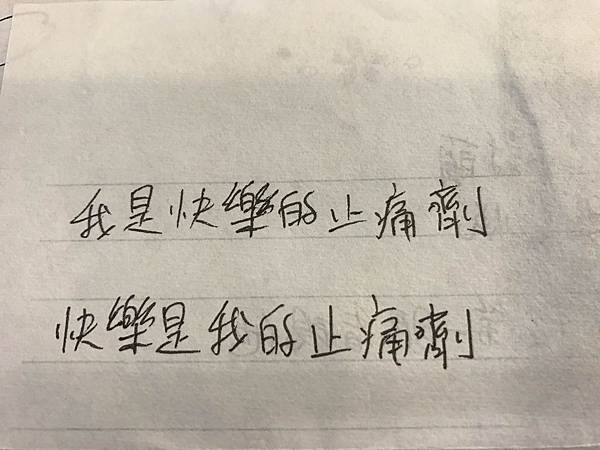 我是快樂的止痛劑
快樂是我的止痛劑